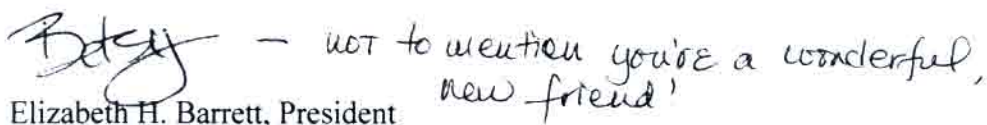 Betsy – not to mention you're a wonderful,
new friend!
Elizabeth H. Barrett, President